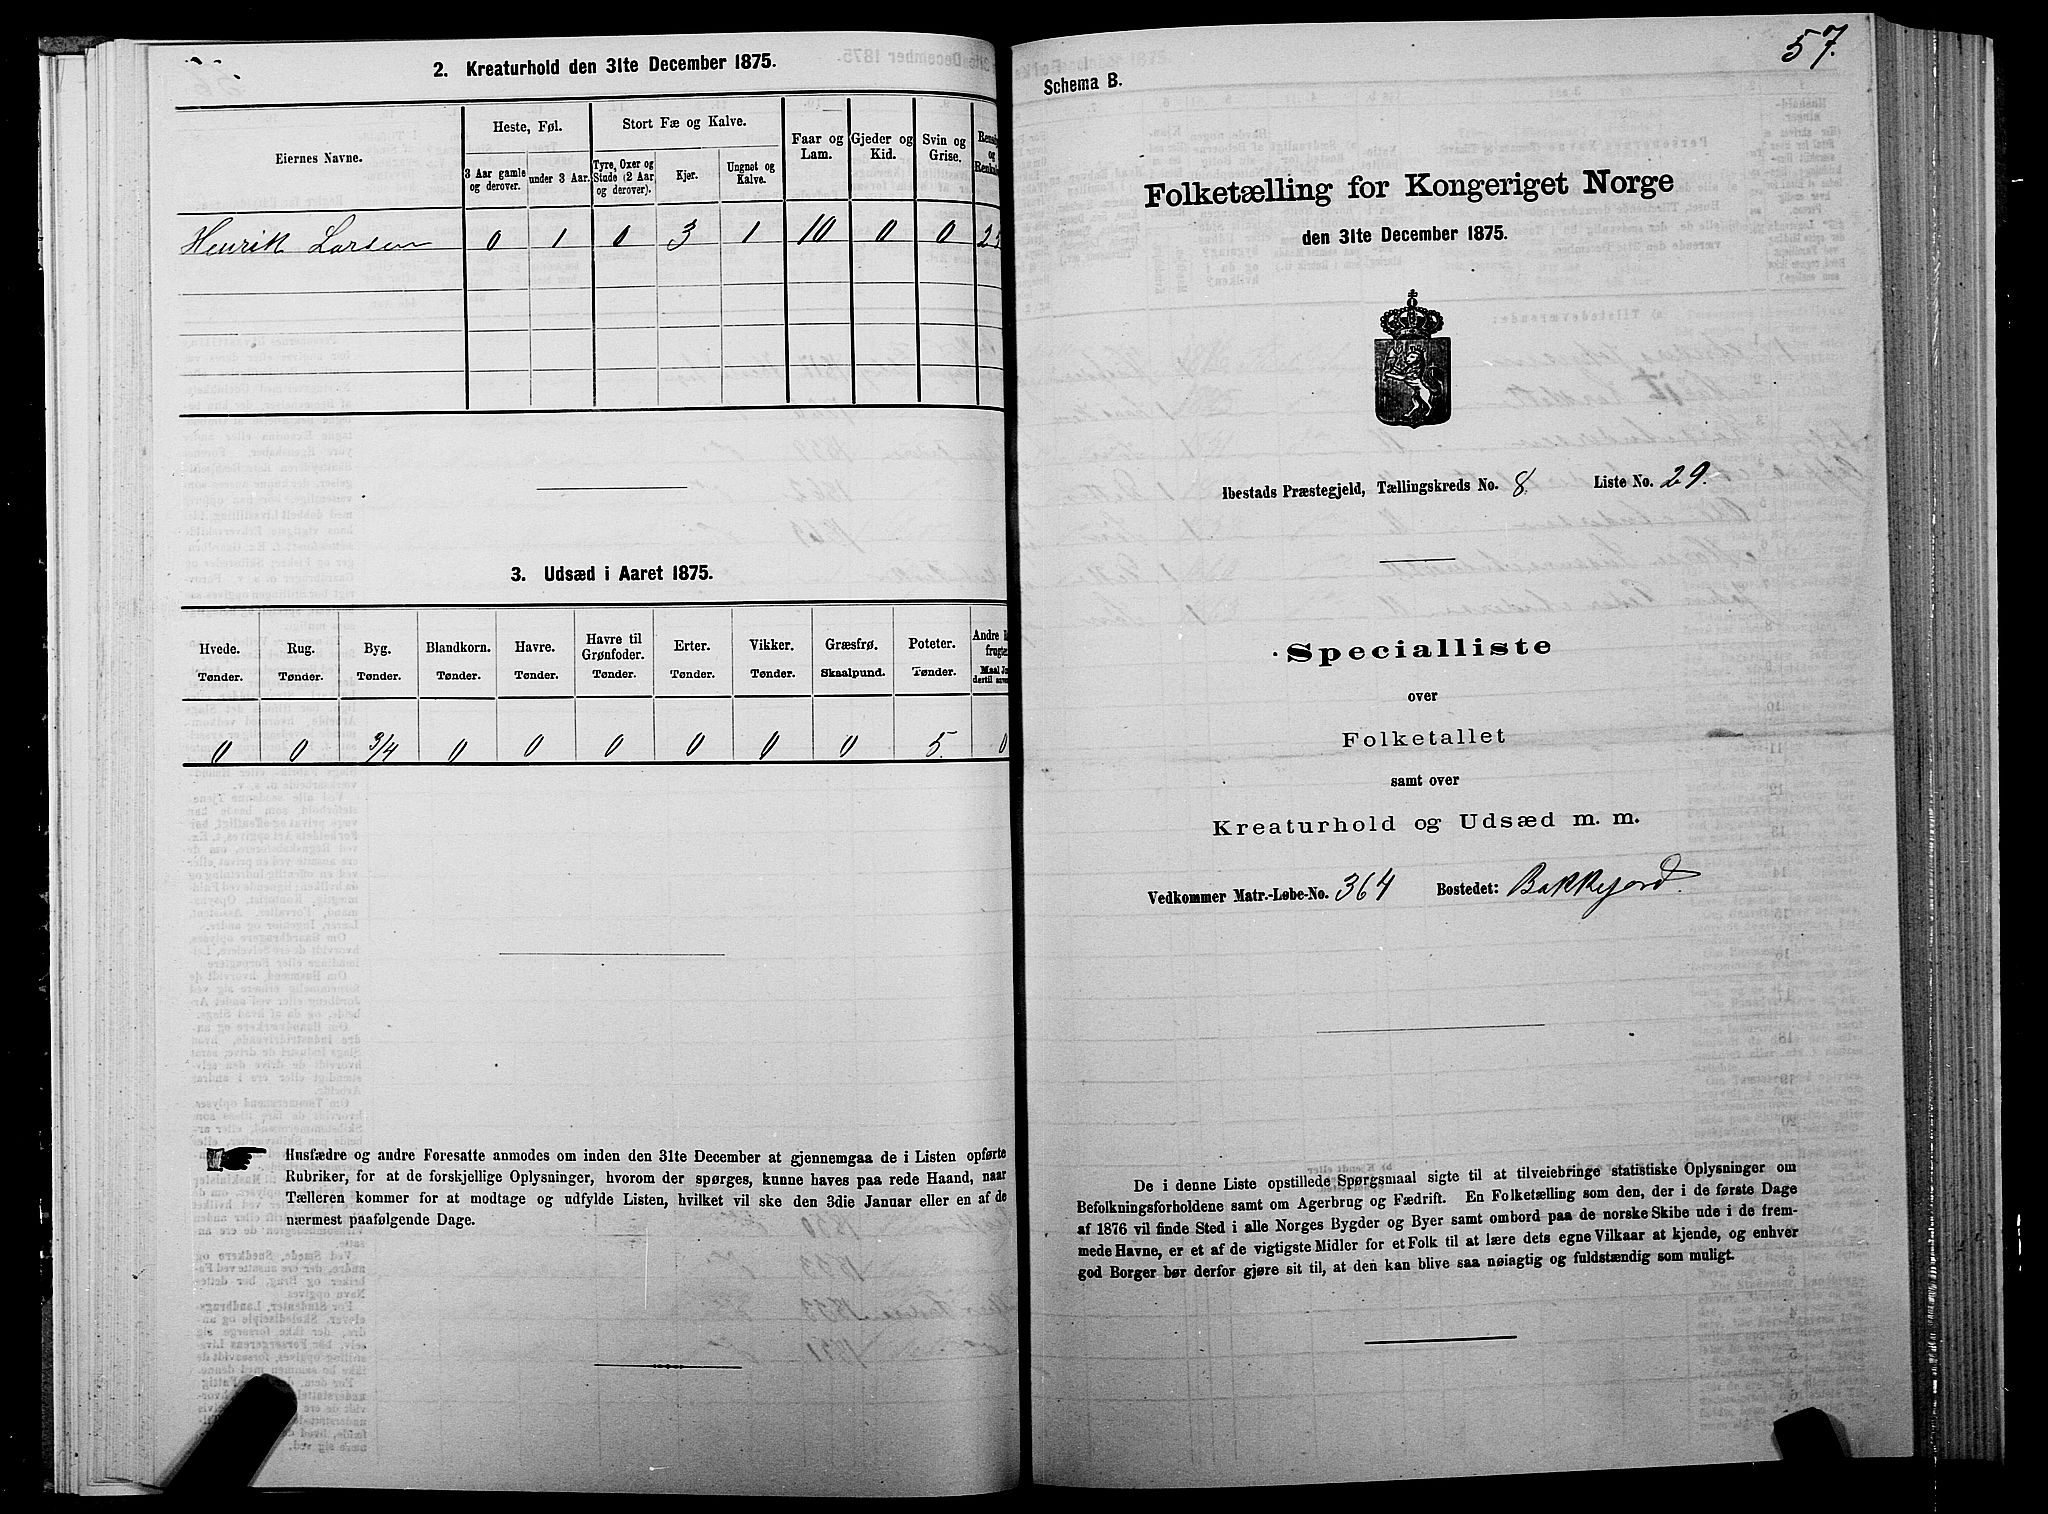 2. Kreaturhold den 31te December 1875.
Eiernes Navne.
Heste, Føl.
Stort Fæ og Kalve.
Faar og Lam.
Gjeder og Kid.
Svin og Grise.
3 Aar gamle og derover.
under 3 Aar.
Tyre, Oxer og Stude (2 Aar og derover).
Kjør.
Ungnøt og Kalve.
Henrik Larsen 0 1 0 3 1 10 0 0
3. Udsæd i Aaret 1875.
Hvede. Rug. Byg. Blandkorn. Havre. Havre til Grønfoder. Erter. Vikker. Græsfrø. Poteter. Andre
Tønder. Tønder. Tønder. Tønder. Tønder. Tønder. Tønder. Tønder. Skaalpund. Tønder.
0 0 3/4 0 0 0 0 0 0 5. 0
Husfædre og andre Foresatte anmodes om inden den 31te December at gjennemgaa de i Listen opførte
Rubriker, for at de forskjellige Oplysninger, hvorom der spørges, kunne haves paa rede Haand, naar
Tælleren kommer for at modtage og udfylde Listen, hvilket vil ske den 3die Januar eller en af de
nærmest paafølgende Dage.
57.
Schema B.
Folketælling for Kongeriget Norge
den 31te December 1875.
Ibestads Præstegjeld, Tællingskreds No. 8. Liste No. 29.
Specialliste
over
Folketallet
samt over
Kreaturhold og Udsæd m. m.
Vedkommer Matr.-Løbe-No. 364 Bostedet: Bakkejord.
De i denne Liste opstillede Spørgsmaal sigte til at tilveiebringe statistiske Oplysninger om
Befolkningsforholdene samt om Agerbrug og Fædrift. En Folketælling som den, der i de første Dage
af 1876 vil finde Sted i alle Norges Bygder og Byer samt ombord paa de norske Skibe ude i de frem-
mede Havne, er et af de vigtigste Midler for et Folk til at lære dets egne Vilkaar at kjende, og enhver
god Borger bør derfor gjøre sit til, at den kan blive saa nøiagtig og fuldstændig som muligt.